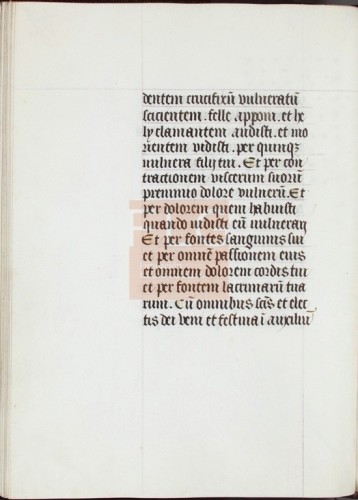 dentem crucifixū vulneratū
scicientem. felle apponi. et he
ly clamantem audisti. et mo
rientem vidisti. per quinqʒ
vulnera filij tui. Et per con
tractionem viscerum suorum
premmio dolore vulnerū. Et
per dolorem quem habuisti
quando uidisti eū vulnerari
Et per fontes sanguinis sui
et per omnē passionem eius
et omnem dolorem cordis tui
et per fontem lacrimarū tua
rum. Cū omnibus scīs et elec
tis dei veni et festina ī auxiliū